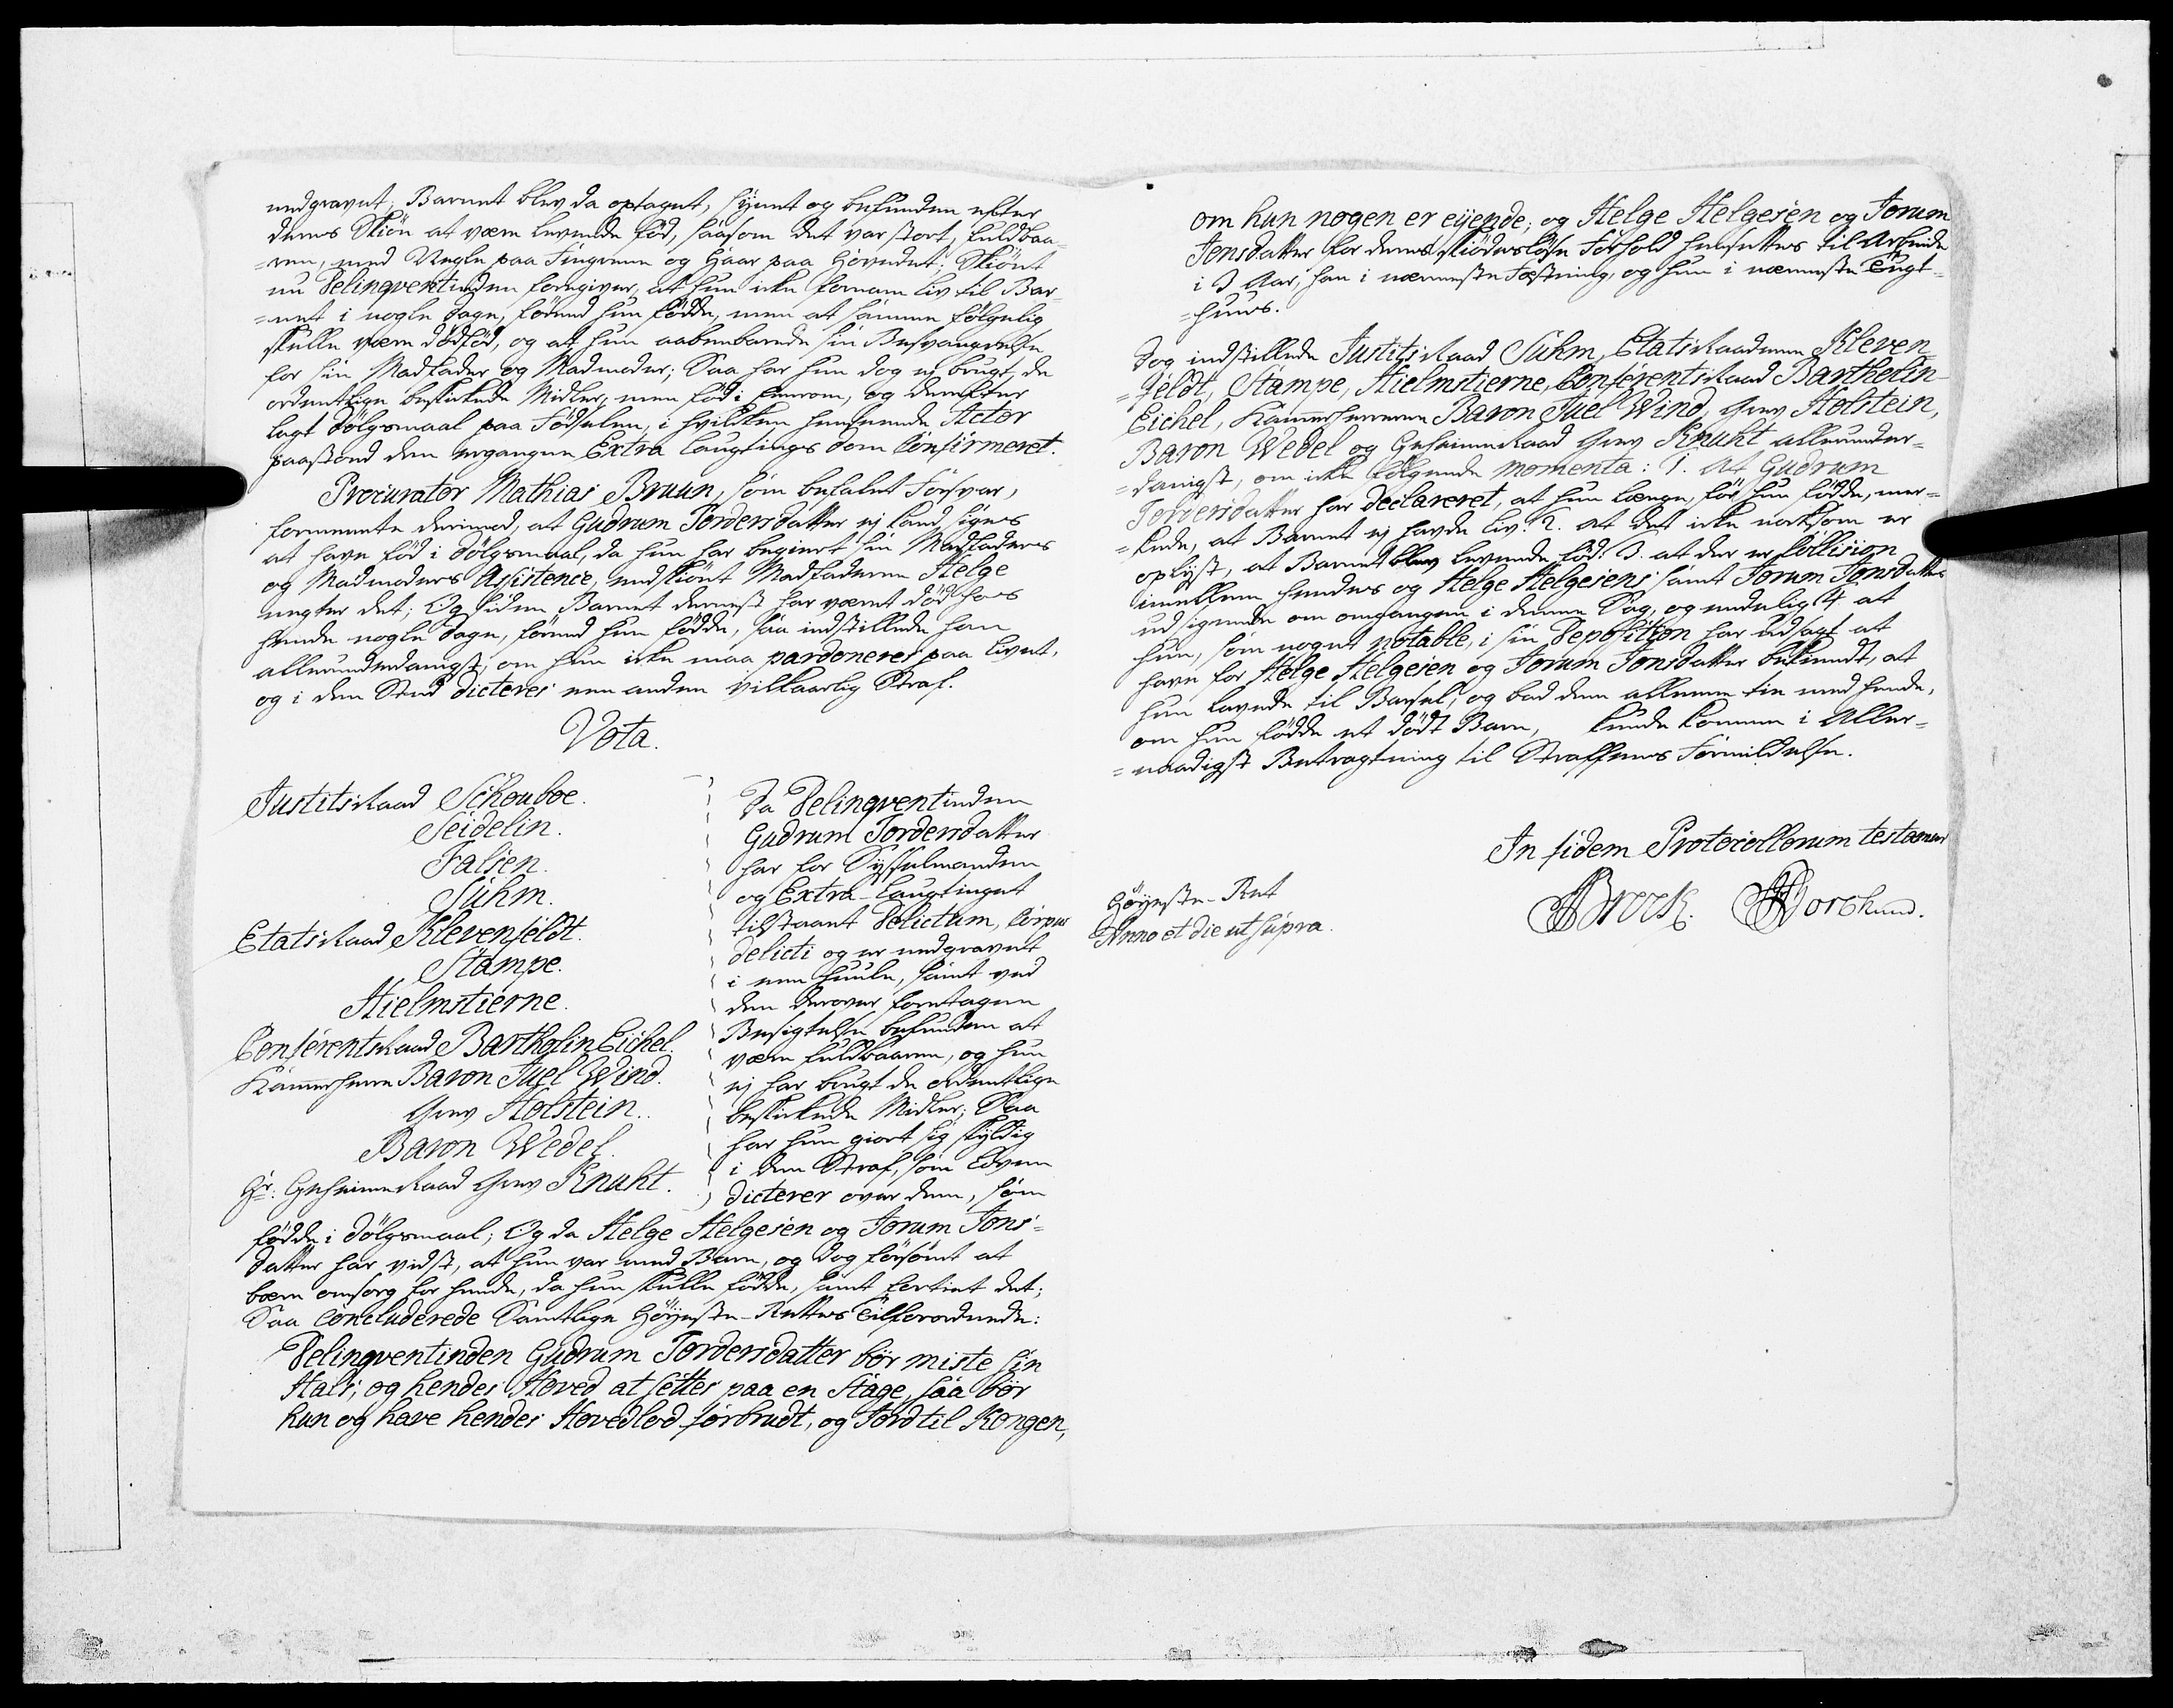 nedgravet; Barnet blev da optaget, synet og befunden efter
deres Skiön at være levende föd, saasom det var stort, fuldbaa-
=ren, med Negle paa Fingrene og Haar paa Hovedet. Skiönt
nu Delinqventinden foregiver, at hun icke fornam Liv til Bar-
=net i nogle Dage, förend hun födde, men at samme fölgelig
skulle være dödföd, og at hun aabenbarede sin Besvangrelse
for sin Madfader og Madmoder; Saa har hun dog ej brugt de
ordentlige beskickede Midler, men föd i Eenrom, og derefter
lagt Dölgsmaal paa Födselen, i hvilken henseende Actor
paastoed den ergangne Extra Laugtings Dom Confirmeret.
Procurator Mathias Bruun, som befalet Forsvar,
formeente derimod, at Gudrum Tordersdatter ej kand siges
at have föd i Dölgsmaal, da hun har begiert sin Madfaders
og Madmoders Assistence, endskiönt Madfaderen Helge
negter det; Og siden Barnet dernest har været död hos
hende nogle Dage, förend hun födde, saa indstillede han
allerunderdanigst, om hun icke maa pardoneres paa Livet,
og i den Sted dicteres een anden vilkaarlig Straf.
Vota.
Justitsraad Schouboe.
Seidelin.
Falsen.
Suhm.
Etatsraad Klevenfeldt.
Stampe.
Hielmstierne.
Conferentsraad Bartholin Eichel.
Kammerherre Baron Juel Wind.
Grev Holstein.
Baron Wedel.
Hr: Geheimeraad Grev Knuht.
Da Delinqventinden
Gudrum Tordersdatter
har for Sysselmanden
og Extra-Laugtinget
tilstaaet Delictum, Corpus
delicti og er nedgravet
i een Huule, samt ved
den derover foretagne
Besigtelse befunden at
være fuldbaaren, og hun
ej har brugt de ordentlige
beskickede Midler; Saa
har hun giort sig skyldig
i den Straf, som Loven
dicterer over dem, som
födde i Dölgsmaal; Og da Helge Helgesen og Jorum Jons-
datter har vidst, at hun var med Barn, og dog forsömt at
bære omsorg for hende, da hun skulle födde, samt fortiet det;
Saa Concluderede Samtlige Höyeste-Rettes Tilforordnede:
Delinqventinden Gudrum Tordersdatter bör miste sin
Hals, og hendes Hoved at settes paa en Stage, saa bör
hun og have hendes Hovedlod forbrudt, og Jord til Kongen,
om hun nogen er eÿende; og Helge Helgesen og Jorum
Jonsdatter for deres skiödeslöse Forhold hensettes til Arbeide
i 3 Aar, han i nærmeste Fæstning, og hun i nærmeste Tugt-
=huus.
Dog indstillede Justitsraad Suhm, Etatsraaderne Kleven-
=feldt, Stampe, Hielmstierne, Conferentsraad Bartholin-
Eichel, Kammerherrerne Baron Juel Wind, Grev Holstein,
Baron Wedel og Geheimeraad Grev Knuht allerunder-
=danigst, om icke fölgende momenta: 1. At Gudrum
Tordersdatter har declareret, at hun længe, för hun födde, mer-
=kede, at Barnet ej havde Liv. 2. at det icke noksom er
oplyst, at Barnet blev levende föd. 3. at der er Collision
imellem hendes og Helge Helgesens samt Jorum Jonsdatters
udsigende om omgangen i denne Sag, og endelig 4. at
hun, som noget notable, i sin Deposition har udsagt at
have for Helge Helgesen og Jorum Jonsdatter bekiendt, at
hun lavede til Barsel, og bad dem allene tie med hende,
om hun födde et dödt Barn, kunde komme i Aller-
=naadigst Betragtning til Straffens Formildelse.
In fidem Protocollorum testamur
Höyeste-Ret
Anno et die ut supra.
Brock.